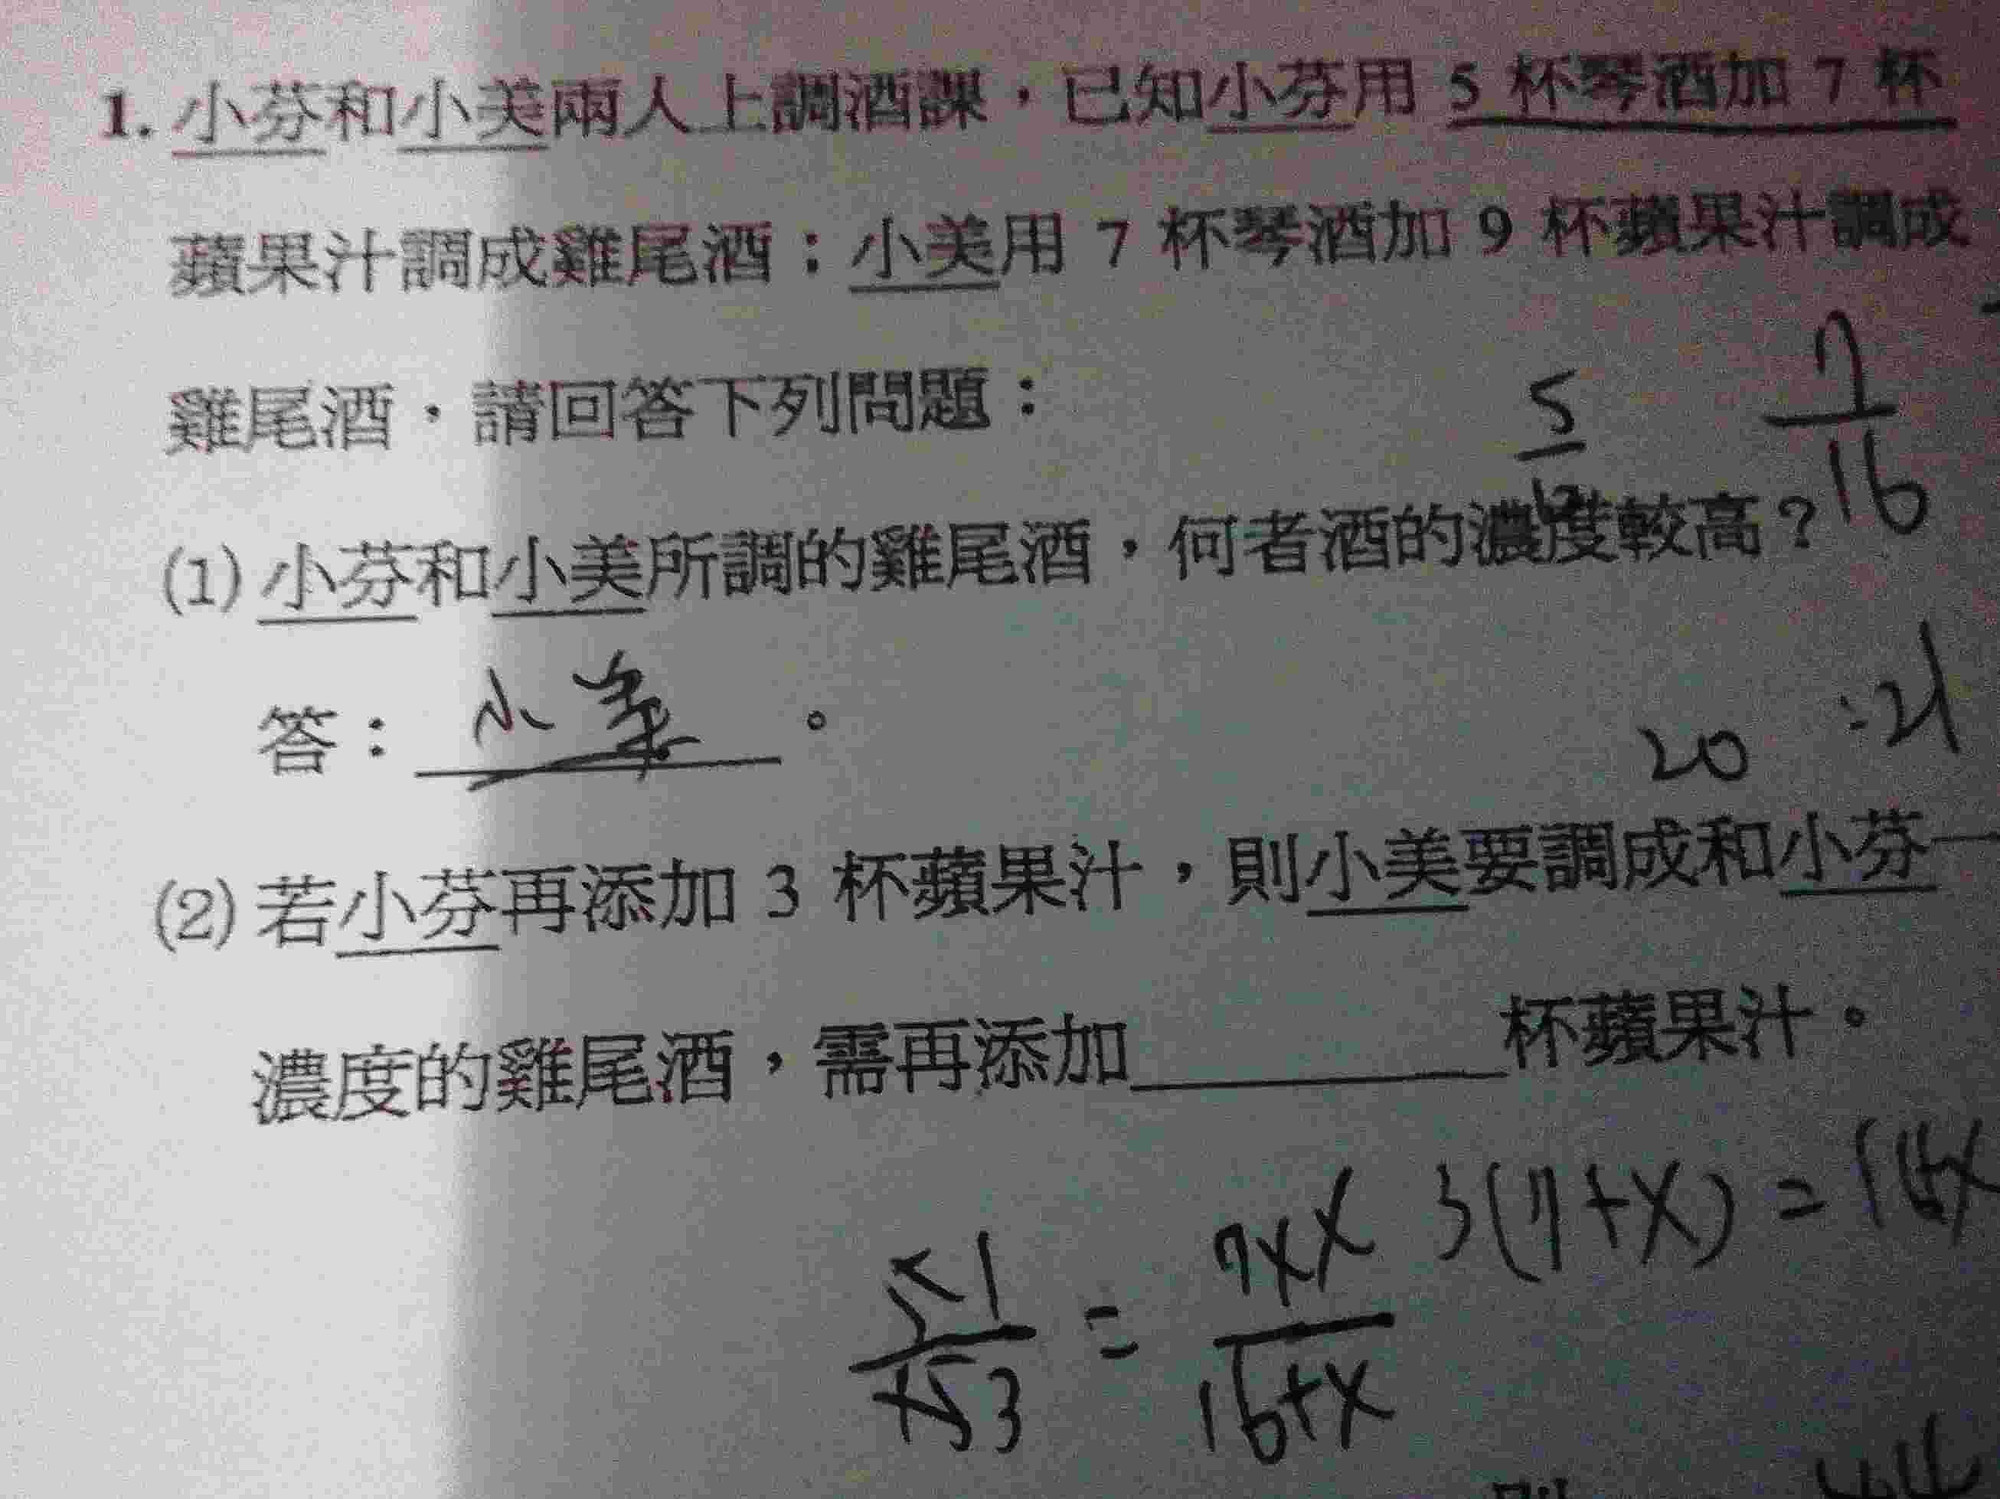 1. 小芬和小美兩人上調酒課，已知小芬用 5 杯琴酒加 7 杯
蘋果汁調成雞尾酒；小美用 7 杯琴酒加 9 杯蘋果汁調成
雞尾酒，請回答下列問題：
5
7
16
(1) 小芬和小美所調的雞尾酒，何者酒的濃度較高？
答：小美。
20 : 21
(2) 若小芬再添加 3 杯蘋果汁，則小美要調成和小芬一
濃度的雞尾酒，需再添加＿＿＿＿杯蘋果汁。
3(7+X)=16+X
5 1 / 15 3 = 7+X / 16+X